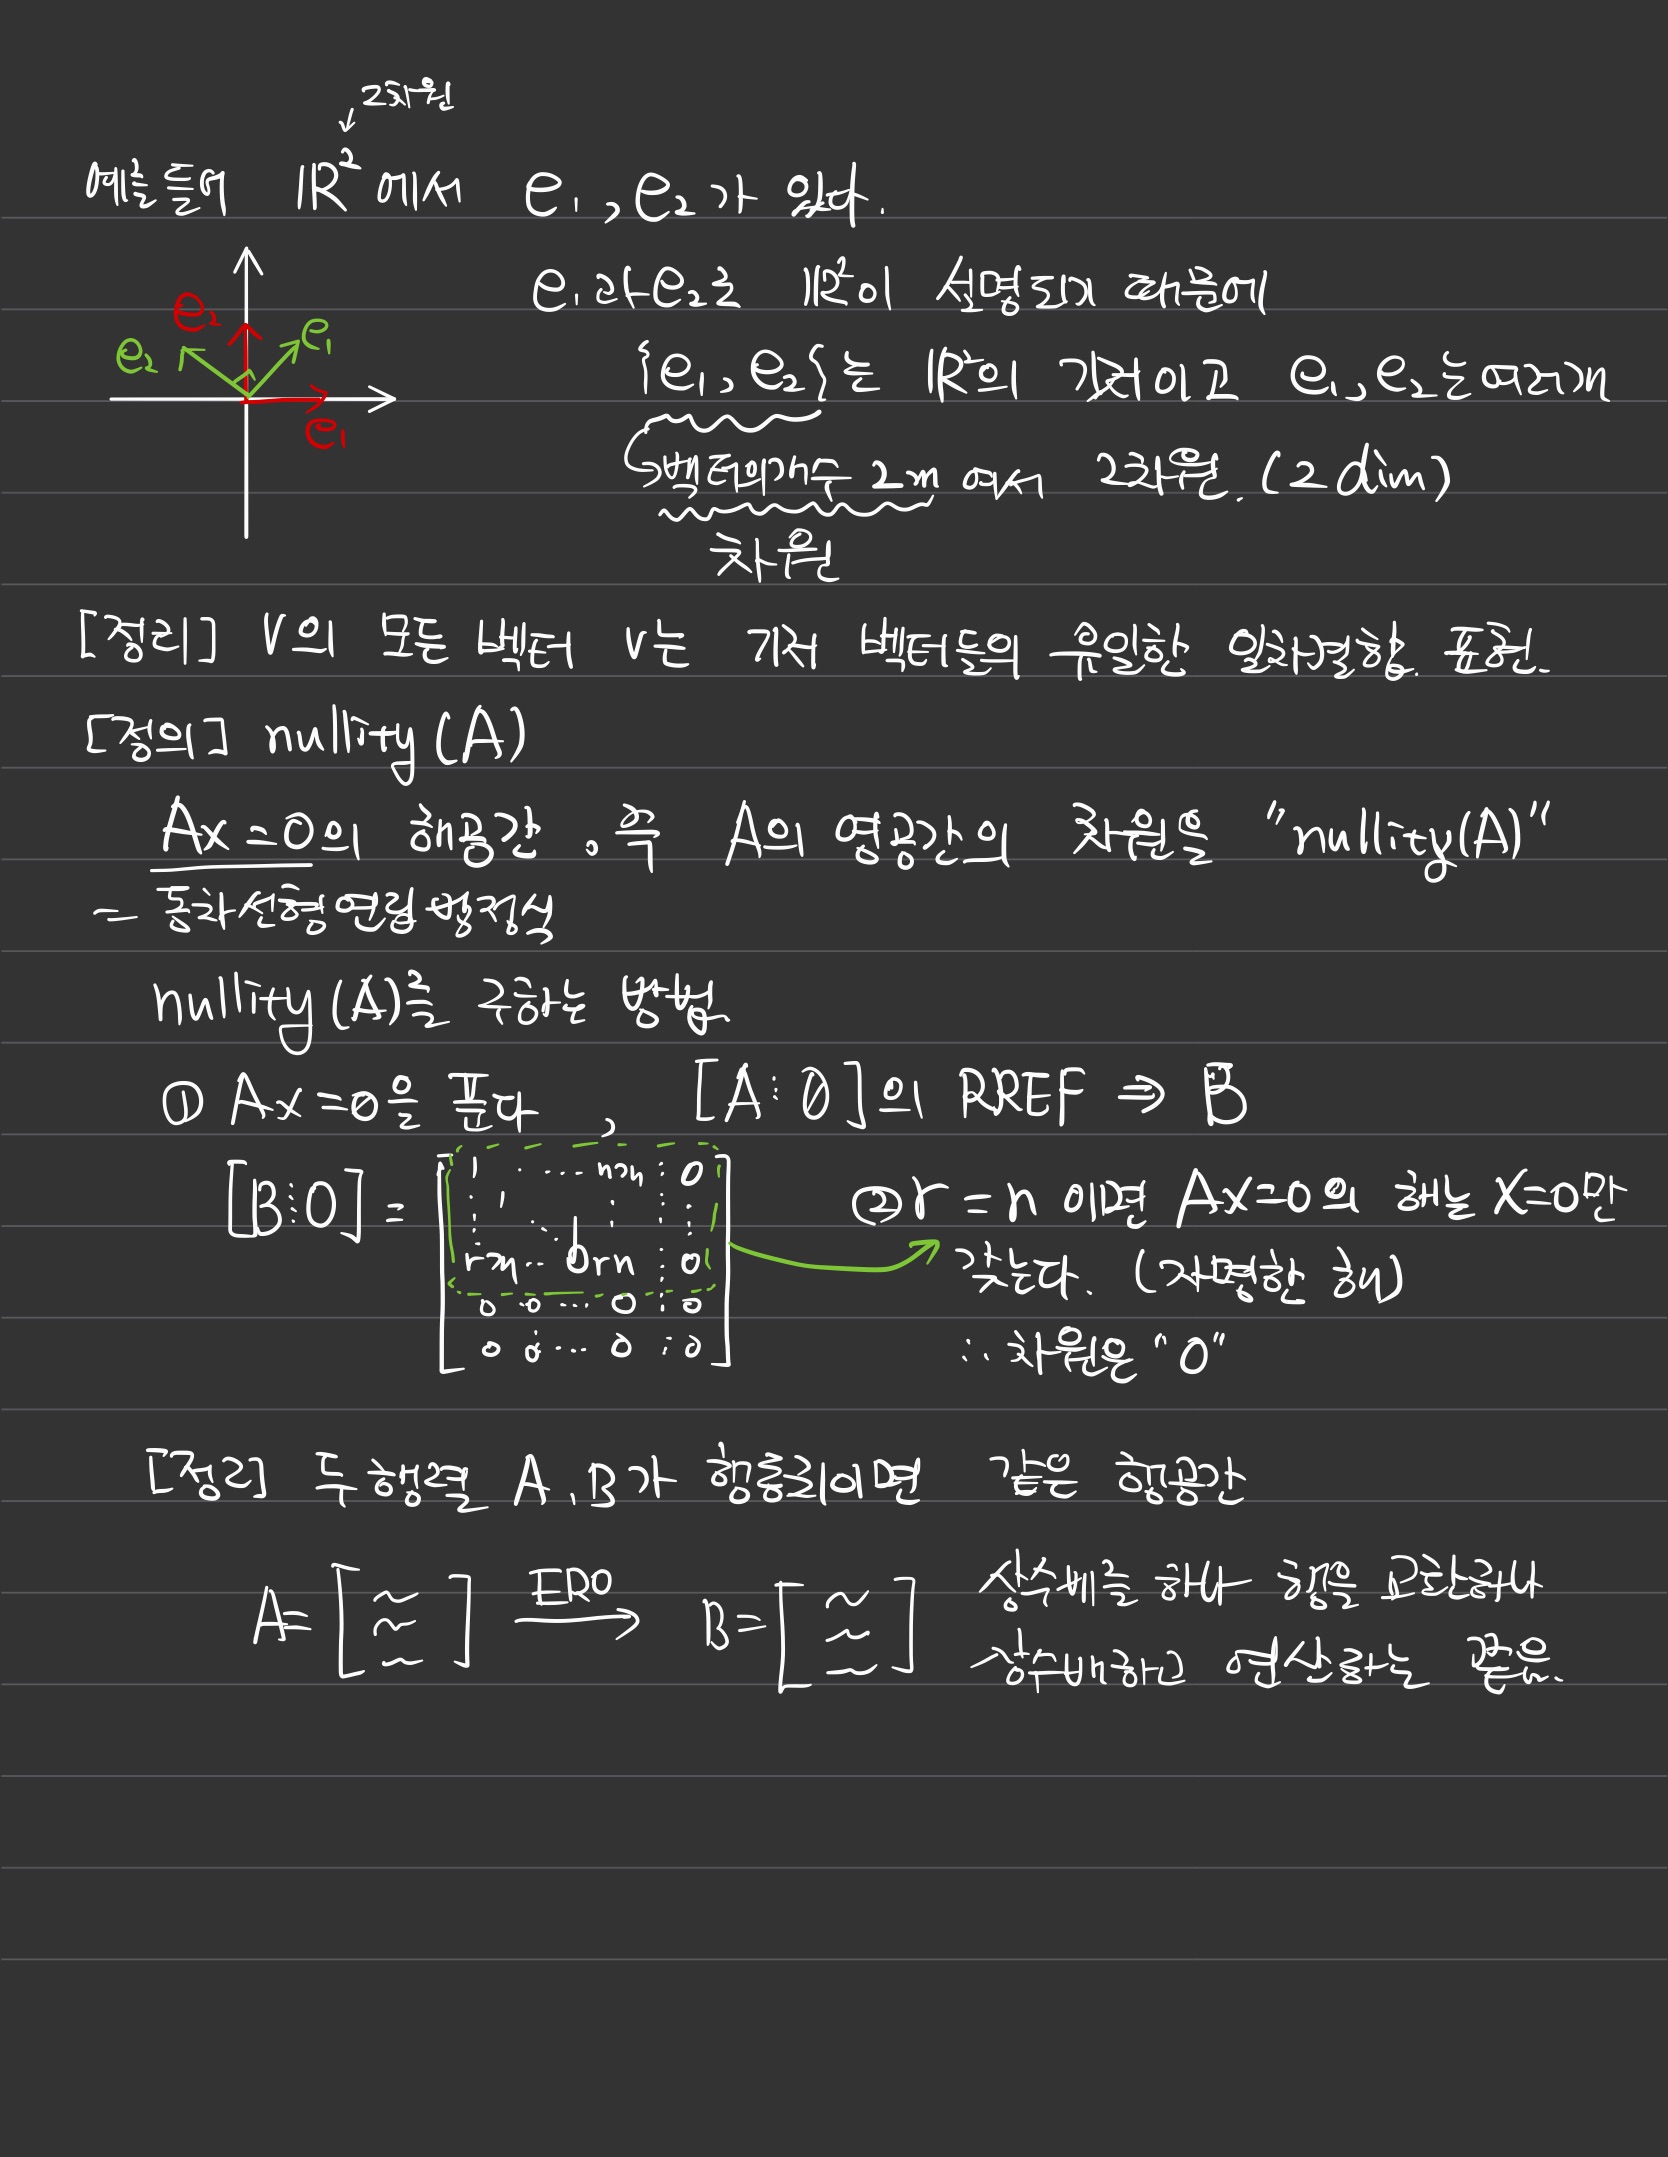 2차원
예를들어 ℝ² 에서 e₁, e₂가 있다.
e₁과 e₂로 ℝ²이 설명되기 때문에
e₂
e₁
e₂
e₁
{e₁, e₂}는 ℝ²의 기저이고 e₁, e₂는 여러개
벡터의개수 2개 여서 2차원. (2 dim)
차원
[정리] V의 모든 벡터 v는 기저 벡터들의 유일한 일차결합. 표현.
[정의] nullity(A)
Ax=0의 해공간, 즉 A의 영공간의 차원을 "nullity(A)"
= 동차선형연립방정식
nullity(A)를 구하는 방법
① Ax=0을 푼다, [A⋮0]의 RREF ⇒ B
[B⋮0] =
1 · ···· ⋮ 0
0 0 ··· 0 ⋮ 0
0 0 ··· 0 ⋮ 0
② r = n 이면 Ax=0의 해는 x=0만
갖는다. (자명한 해)
∴ 차원은 "0"
[정리] 두 행렬 A, B가 행동치이면 같은 행공간
A= [ ] ERO → B= [ ] 상수배를 하나 행을 교환하나
상수배하고 연산하나는 같음.